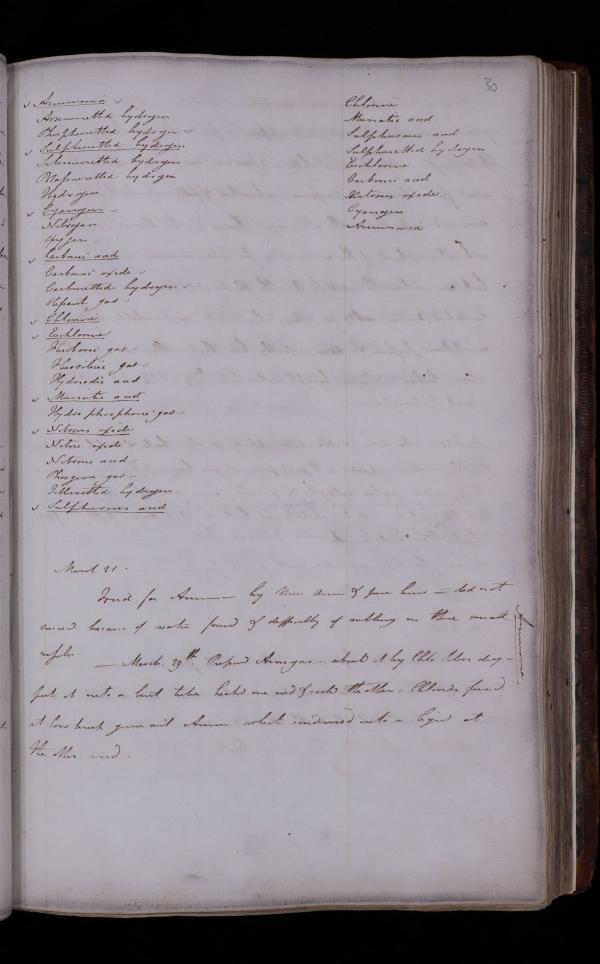 30
Ammonia
Arseniuretted hydrogen
Phosphuretted hydrogen
Sulphuretted hydrogen
Seleniuretted hydrogen
Potassuretted hydrogen
Hydrogen
Cyanogen
Nitrogen
Oxygen
Carbonic acid
Carbonic oxide
Carburetted hydrogen
Olefiant gas
Chlorine
Euchlorine
Fluoboric gas
Fluosilicic gas
Hydriodic acid
Muriatic acid
Hydrophosphoric gas
Nitrous oxide
Nitric oxide
Nitrous acid
Phosgene gas
Telluretted hydrogen
Sulphurous acid
Chlorine
Muriatic acid
Sulphurous acid
Sulphuretted hydrogen
Euchlorine
Carbonic acid
Nitrous oxide
Cyanogen
Ammonia
March 21.
Tried for Ammonia by Mur. Amm & pure lime — did not
succeed because of water formed & difficulty of in these small
vessels.
— March 29th. Ammn gas — about it by Chlo. Silver dry —
put it into a bent tube heated one end & cooled the other. Chloride fused
at low heat gave out Ammn which condensed into a liquid at
the other end.
Ammonia